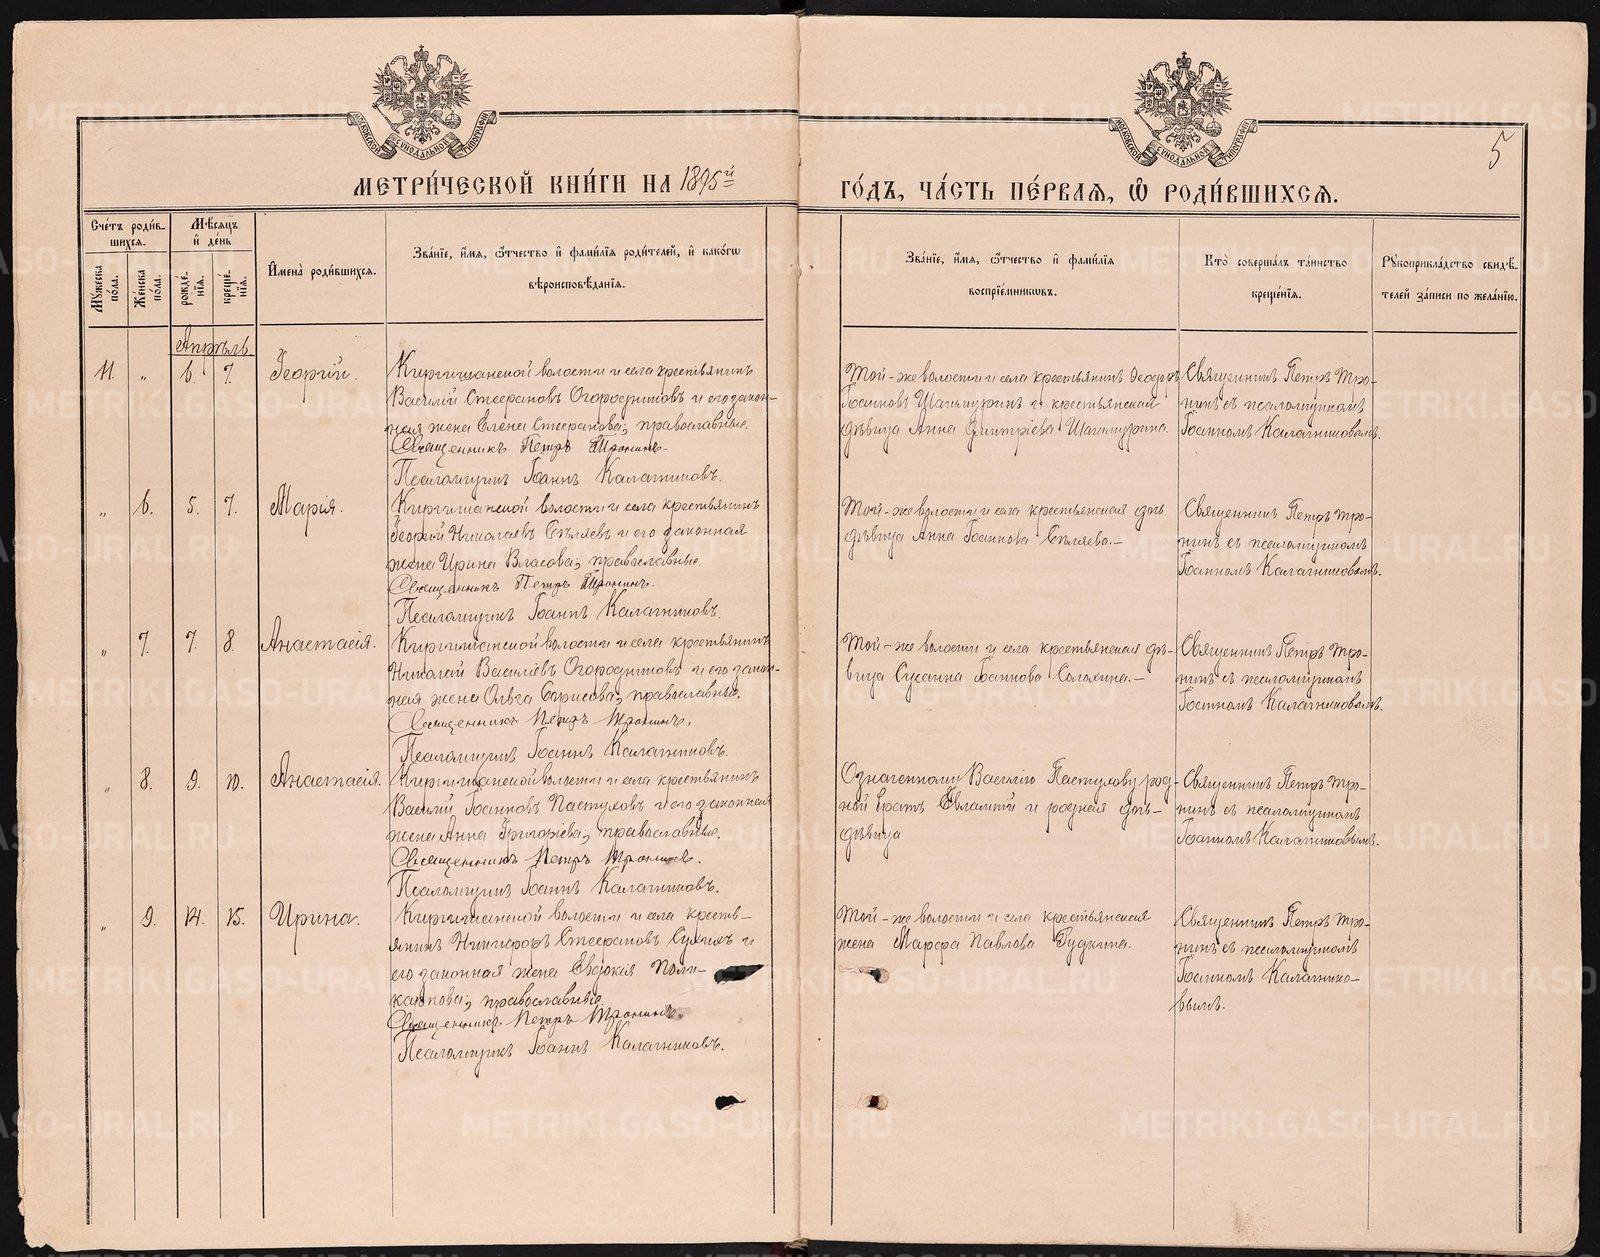 МОСКОВСКОЙ СУНОДАЛЬНОЙ ТИПОГРАФІИ
МОСКОВСКОЙ СУНОДАЛЬНОЙ ТИПОГРАФІИ
5
МЕТРИ́ЧЕСКОЙ КНИ́ГИ НА 1895й
ГО́ДЪ, ЧА́СТЬ ПЕ́РВАѦ, Ѽ РОДИ́ВШИХСѦ.
Сче́тъ роди́в-
шихсѧ.
Мѣ́сѧцъ
и҆ де́нь
Му́жеска
по́ла.
Же́нска
по́ла.
рожде́-
нїѧ.
креще́-
нїѧ.
И҆мена̀ роди́вшихсѧ.
Зва́нїе, и҆́мѧ, ѻ҆́тчество и҆ фами́лїѧ роди́телей, и҆ како́гѡ
вѣроисповѣ́данїѧ.
Зва́нїе, и҆́мѧ, ѻ҆́тчество и҆ фами́лїѧ
воспрїе́мникѡвъ.
Кто̀ соверша́лъ та́инство
креще́нїѧ.
Рꙋкоприкла́дство свидѣ́-
телей за́писи по жела́нїю.
Апрѣль.
11. „ 6. 7. Георгій.
Киргишанской волости и села крестьянинъ
Василій Стефановъ Огородниковъ и его закон-
ная жена Елена Стефанова, православные.
Священникъ Петръ Тронинъ.
Псаломщикъ Іоаннъ Калачниковъ.
Той-же волости и села крестьянинъ Ѳеодоръ
Іоанновъ и крестьянская
дѣвица Анна Димитріева
Священникъ Петръ Тро-
нинъ съ псаломщикомъ
Іоанномъ Калачниковымъ.
„ 6. 5. 7. Марія.
Киргишанской волости и села крестьянинъ
Георгій Николаевъ Бѣляевъ и его законная
жена Ирина Власова, православные.
Священникъ Петръ Тронинъ.
Псаломщикъ Іоаннъ Калачниковъ.
Той-же волости и села крестьянская дочь
дѣвица Анна Іоаннова Бѣляева.-
Священникъ Петръ Тро-
нинъ съ псаломщикомъ
Іоанномъ Калачниковымъ.
„ 7. 7. 8. Анастасія.
Киргишанской волости и села крестьянинъ
Николай Васильевъ Огородниковъ и его закон-
ная жена Ольга Борисова, православные.
Священникъ Петръ Тронинъ.
Псаломщикъ Іоаннъ Калачниковъ.
Той-же волости и села крестьянская дѣ-
вица Сусанна Іоаннова
Священникъ Петръ Тро-
нинъ съ псаломщикомъ
Іоанномъ Калачниковымъ.
„ 8. 9. 10. Анастасія.
Киргишанской волости и села крестьянинъ
Василій Іоанновъ Пастуховъ и его законная
жена Анна Григоріева, православные.
Священникъ Петръ Тронинъ.
Псаломщикъ Іоаннъ Калачниковъ.
Означенному Василію Пастухову род-
ной братъ Евлампій и родная дочь-
дѣвица
Священникъ Петръ Тро-
нинъ съ псаломщикомъ
Іоанномъ Калачниковымъ.
„ 9. 14. 15. Ирина.
Киргишанской волости и села кресть-
янинъ Никифоръ Стефановъ и
его законная жена Евдокія Поли-
карпова, православные.
Священникъ Петръ Тронинъ.
Псаломщикъ Іоаннъ Калачниковъ.
Той-же волости и села крестьянская
жена Марѳа Павлова Гудкина.
Священникъ Петръ Тро-
нинъ съ псаломщикомъ
Іоанномъ Калачнико-
вымъ.
METRIKI.GASO-URAL.RU